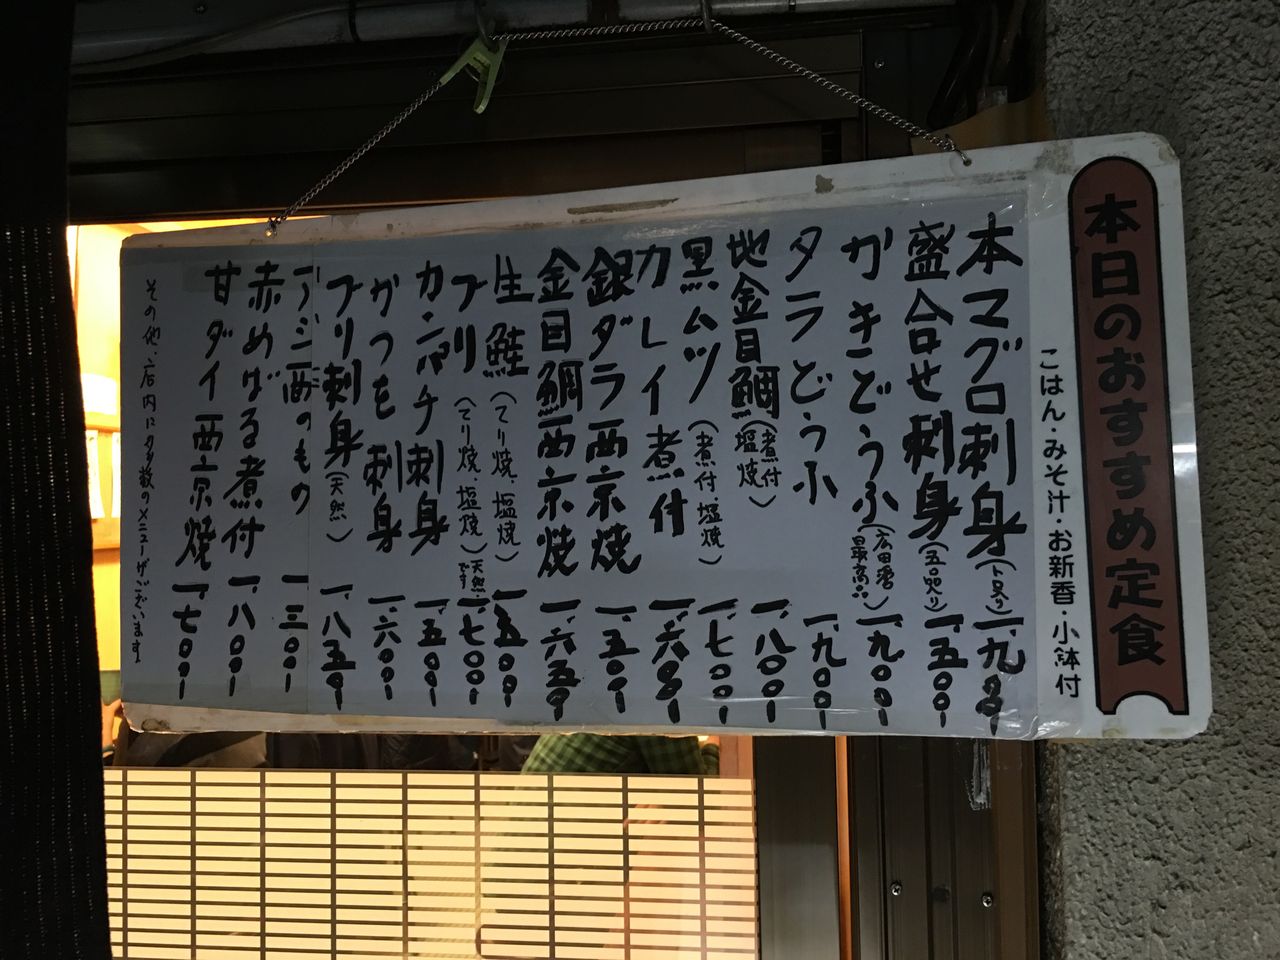 本日のおすすめ定食
ごはん・みそ汁・お新香・小鉢付
本マグロ刺身(トロ入り)一、九〇〇ー
盛合せ刺身(五品入り)一、五〇〇ー
かきどうふ(広田湾最高品)一、九〇〇ー
タラどうふ 一、九〇〇ー
地金目鯛(煮付塩焼)一、八〇〇ー
黒ムツ(煮付、塩焼)一、七〇〇ー
カレイ煮付 一、六〇〇ー
銀ダラ西京焼 一、五〇〇ー
金目鯛西京焼 一、六五〇ー
生鮭(てり焼、塩焼)一、五〇〇ー
ブリ(てり焼、塩焼)天然です 一、七〇〇ー
カンパチ刺身 一、五〇〇ー
かつを刺身 一、六〇〇ー
ブリ刺身(天然)一、八五〇ー
アジ酢のもの 一、三〇〇ー
赤めばる煮付 一、八〇〇ー
甘ダイ西京焼 一、七〇〇ー
その他、店内に多数のメニューがございます